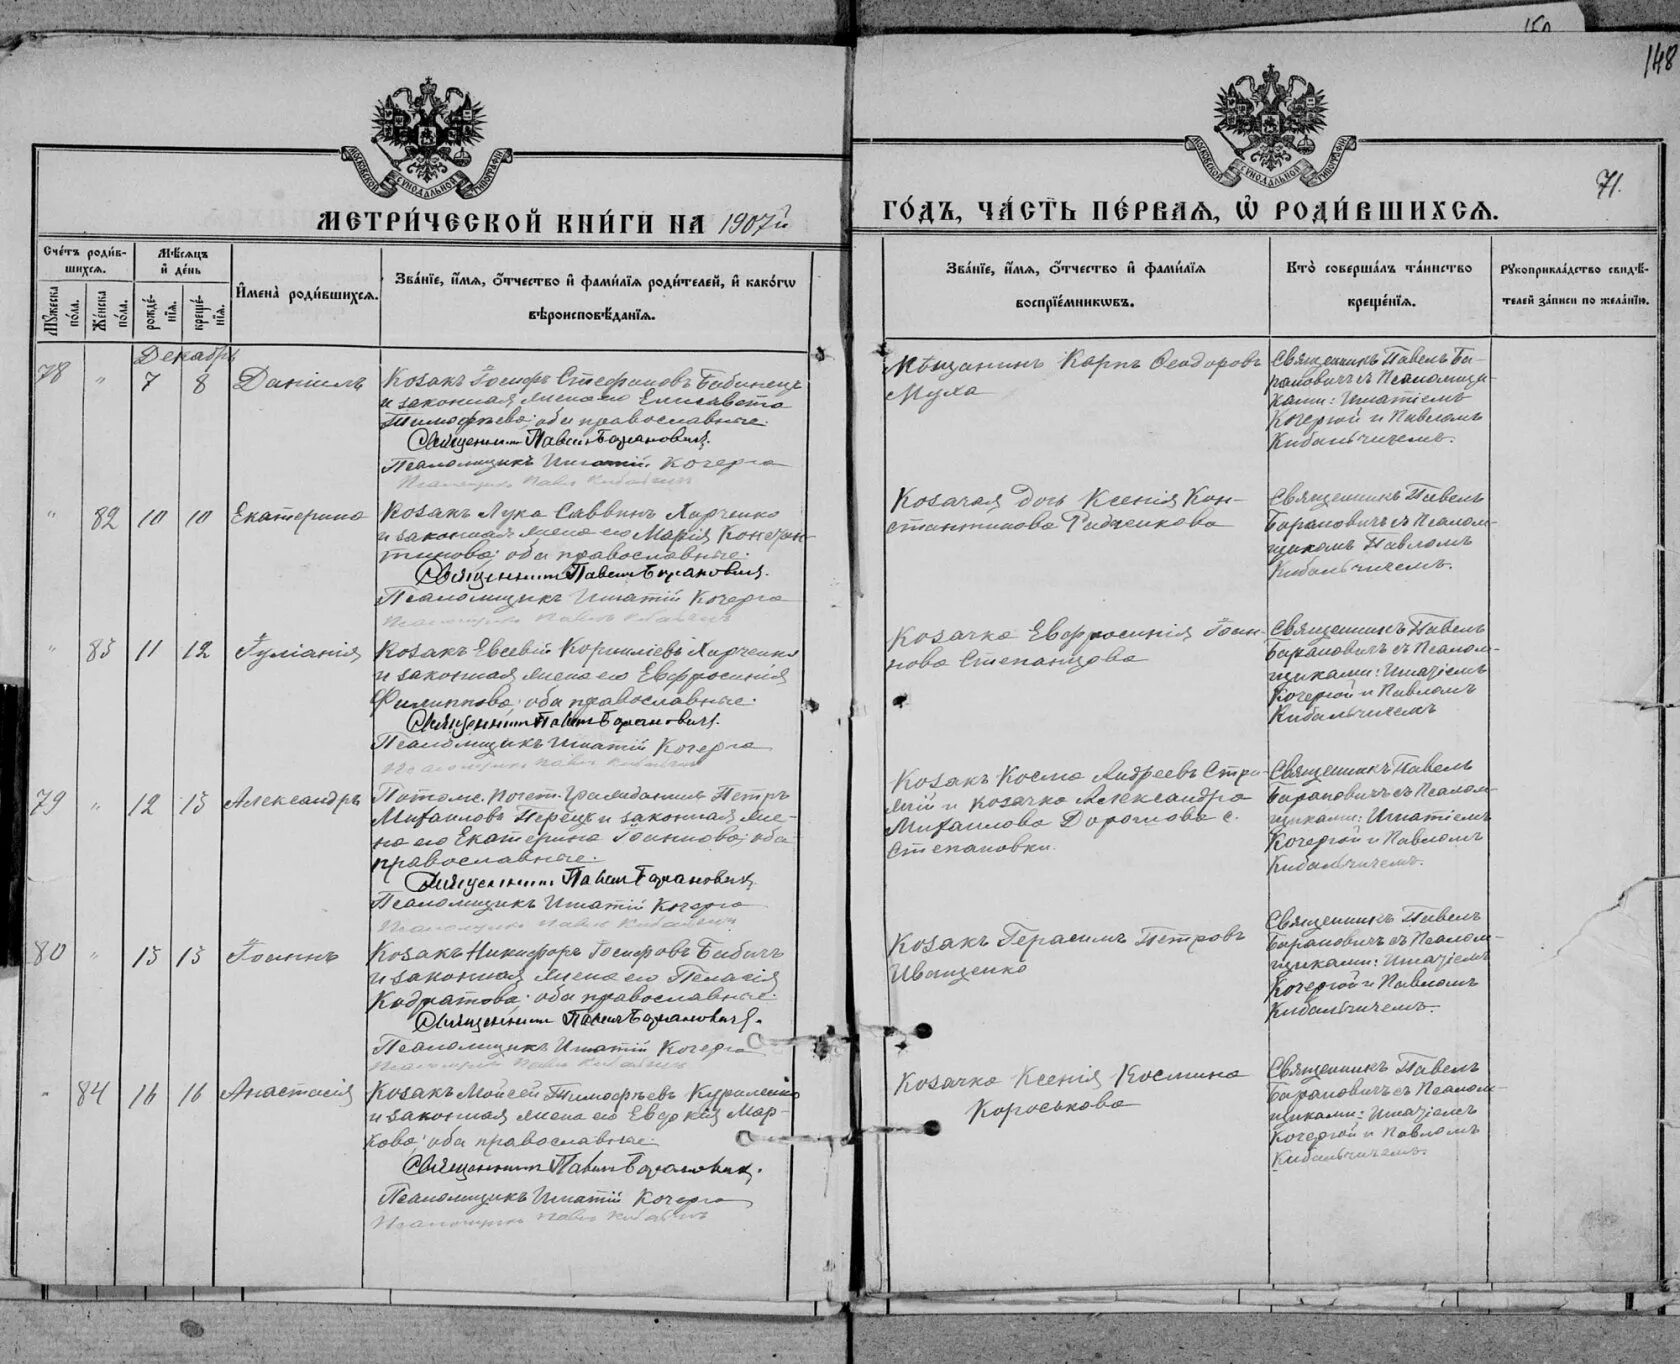 150
148
71.
МОСКОВСКОЙ СѴНОДАЛЬНОЙ ТИПОГРАФІИ
МОСКОВСКОЙ СѴНОДАЛЬНОЙ ТИПОГРАФІИ
МЕТРИ́ЧЕСКОЙ КНИ́ГИ НА 1907й
ГО́ДЪ, ЧА́СТЬ ПЕ́РВАЯ, Ѡ҆ РОДИ́ВШИХСЯ.
Сче́тъ роди́в-
шихся.
Мꙋжеска по́ла.
Же́нска по́ла.
Мѣ́сяцъ
и҆ де́нь
рожде́-
нїя.
креще́-
нїя.
И҆мена̀ роди́вшихся.
Зва́нїе, и҆́мя, ѻ҆́тчество и҆ фами́лїя роди́телей, и҆ како́гѡ
вѣроисповѣ́данїя.
Зва́нїе, и҆́мя, ѻ҆́тчество и҆ фами́лїя
воспрїе́мникѡвъ.
Кто̀ соверша́лъ та́инство
креще́нїя.
Рꙋкоприкла́дство свидѣ́-
телей за́писи по жела́нїю.
Декабрь
78 " 7 8 Даніилъ
Козакъ Іосифъ Стефановъ Бабинецъ
и законная жена его Елисавета
Тимофѣева; оба православные.
Священникъ Павелъ Баранович.
Псаломщикъ Игнатій Кочерга
Псаломщикъ Павелъ Кибальчичъ
Мѣщанинъ Карпъ Ѳеодоровъ
Муха
Священникъ Павелъ Ба-
рановичъ съ Псаломщи-
ками: Игнатіемъ
Кочергой и Павломъ
Кибальчичемъ.
" 82 10 10 Екатерина
Козакъ Лука Саввинъ Харченко
и законная жена его Марія Констан-
тинова; оба православные.
Священникъ Павелъ Баранович.
Псаломщикъ Игнатій Кочерга
Псаломщикъ Павелъ Кибальчичъ
Козачая дочь Ксенія Кон-
стантинова Рабченкова
Священникъ Павелъ
Барановичъ съ Псалом-
щикомъ Павломъ
Кибальчичемъ.
" 83 11 12 Іуліанія
Козакъ Евсевій Корниліевъ Харченко
и законная жена его Евфросинія
Филиппова; оба православные.
Священникъ Павелъ Баранович.
Псаломщикъ Игнатій Кочерга
Псаломщикъ Павелъ Кибальчичъ
Козачка Евфросинія Іоан-
нова Степанцова
Священникъ Павелъ
Барановичъ съ Псалом-
щиками: Игнатіемъ
Кочергой и Павломъ
Кибальчичемъ
79 " 12 13 Александръ
Потомс. Почет. Гражданинъ Петръ
Михаиловъ Перецъ и законная же-
на его Екатерина Іоаннова; оба
православные.
Священникъ Павелъ Баранович.
Псаломщикъ Игнатій Кочерга
Псаломщикъ Павелъ Кибальчичъ
Козакъ Косма Андреевъ
и козачка Александра
Михаилова Дорошова с.
Степановки.
Священникъ Павелъ
Барановичъ съ Псалом-
щиками: Игнатіемъ
Кочергой и Павломъ
Кибальчичемъ.
80 " 13 13 Іоаннъ
Козакъ Никифоръ Іосифовъ Бабичъ
и законная жена его Пелагія
Кодратова; оба православные.
Священникъ Павелъ Баранович.
Псаломщикъ Игнатій Кочерга
Псаломщикъ Павелъ Кибальчичъ
Козакъ Герасимъ Петровъ
Иващенко
Священникъ Павелъ
Барановичъ съ Псалом-
щиками: Игнатіемъ
Кочергой и Павломъ
Кибальчичемъ.
" 84 16 16 Анастасія
Козакъ Мойсей Тимофѣевъ Куриленко
и законная жена его Евдокія Мар-
кова; оба православные.
Священникъ Павелъ Баранович.
Псаломщикъ Игнатій Кочерга
Псаломщикъ Павелъ Кибальчичъ
Козачка Ксенія Космина
Кароськова
Священникъ Павелъ
Барановичъ съ Псалом-
щиками: Игнатіемъ
Кочергой и Павломъ
Кибальчичемъ.